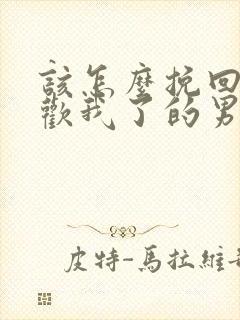 該怎麼挽回
歡我了的男
皮特-馬拉維